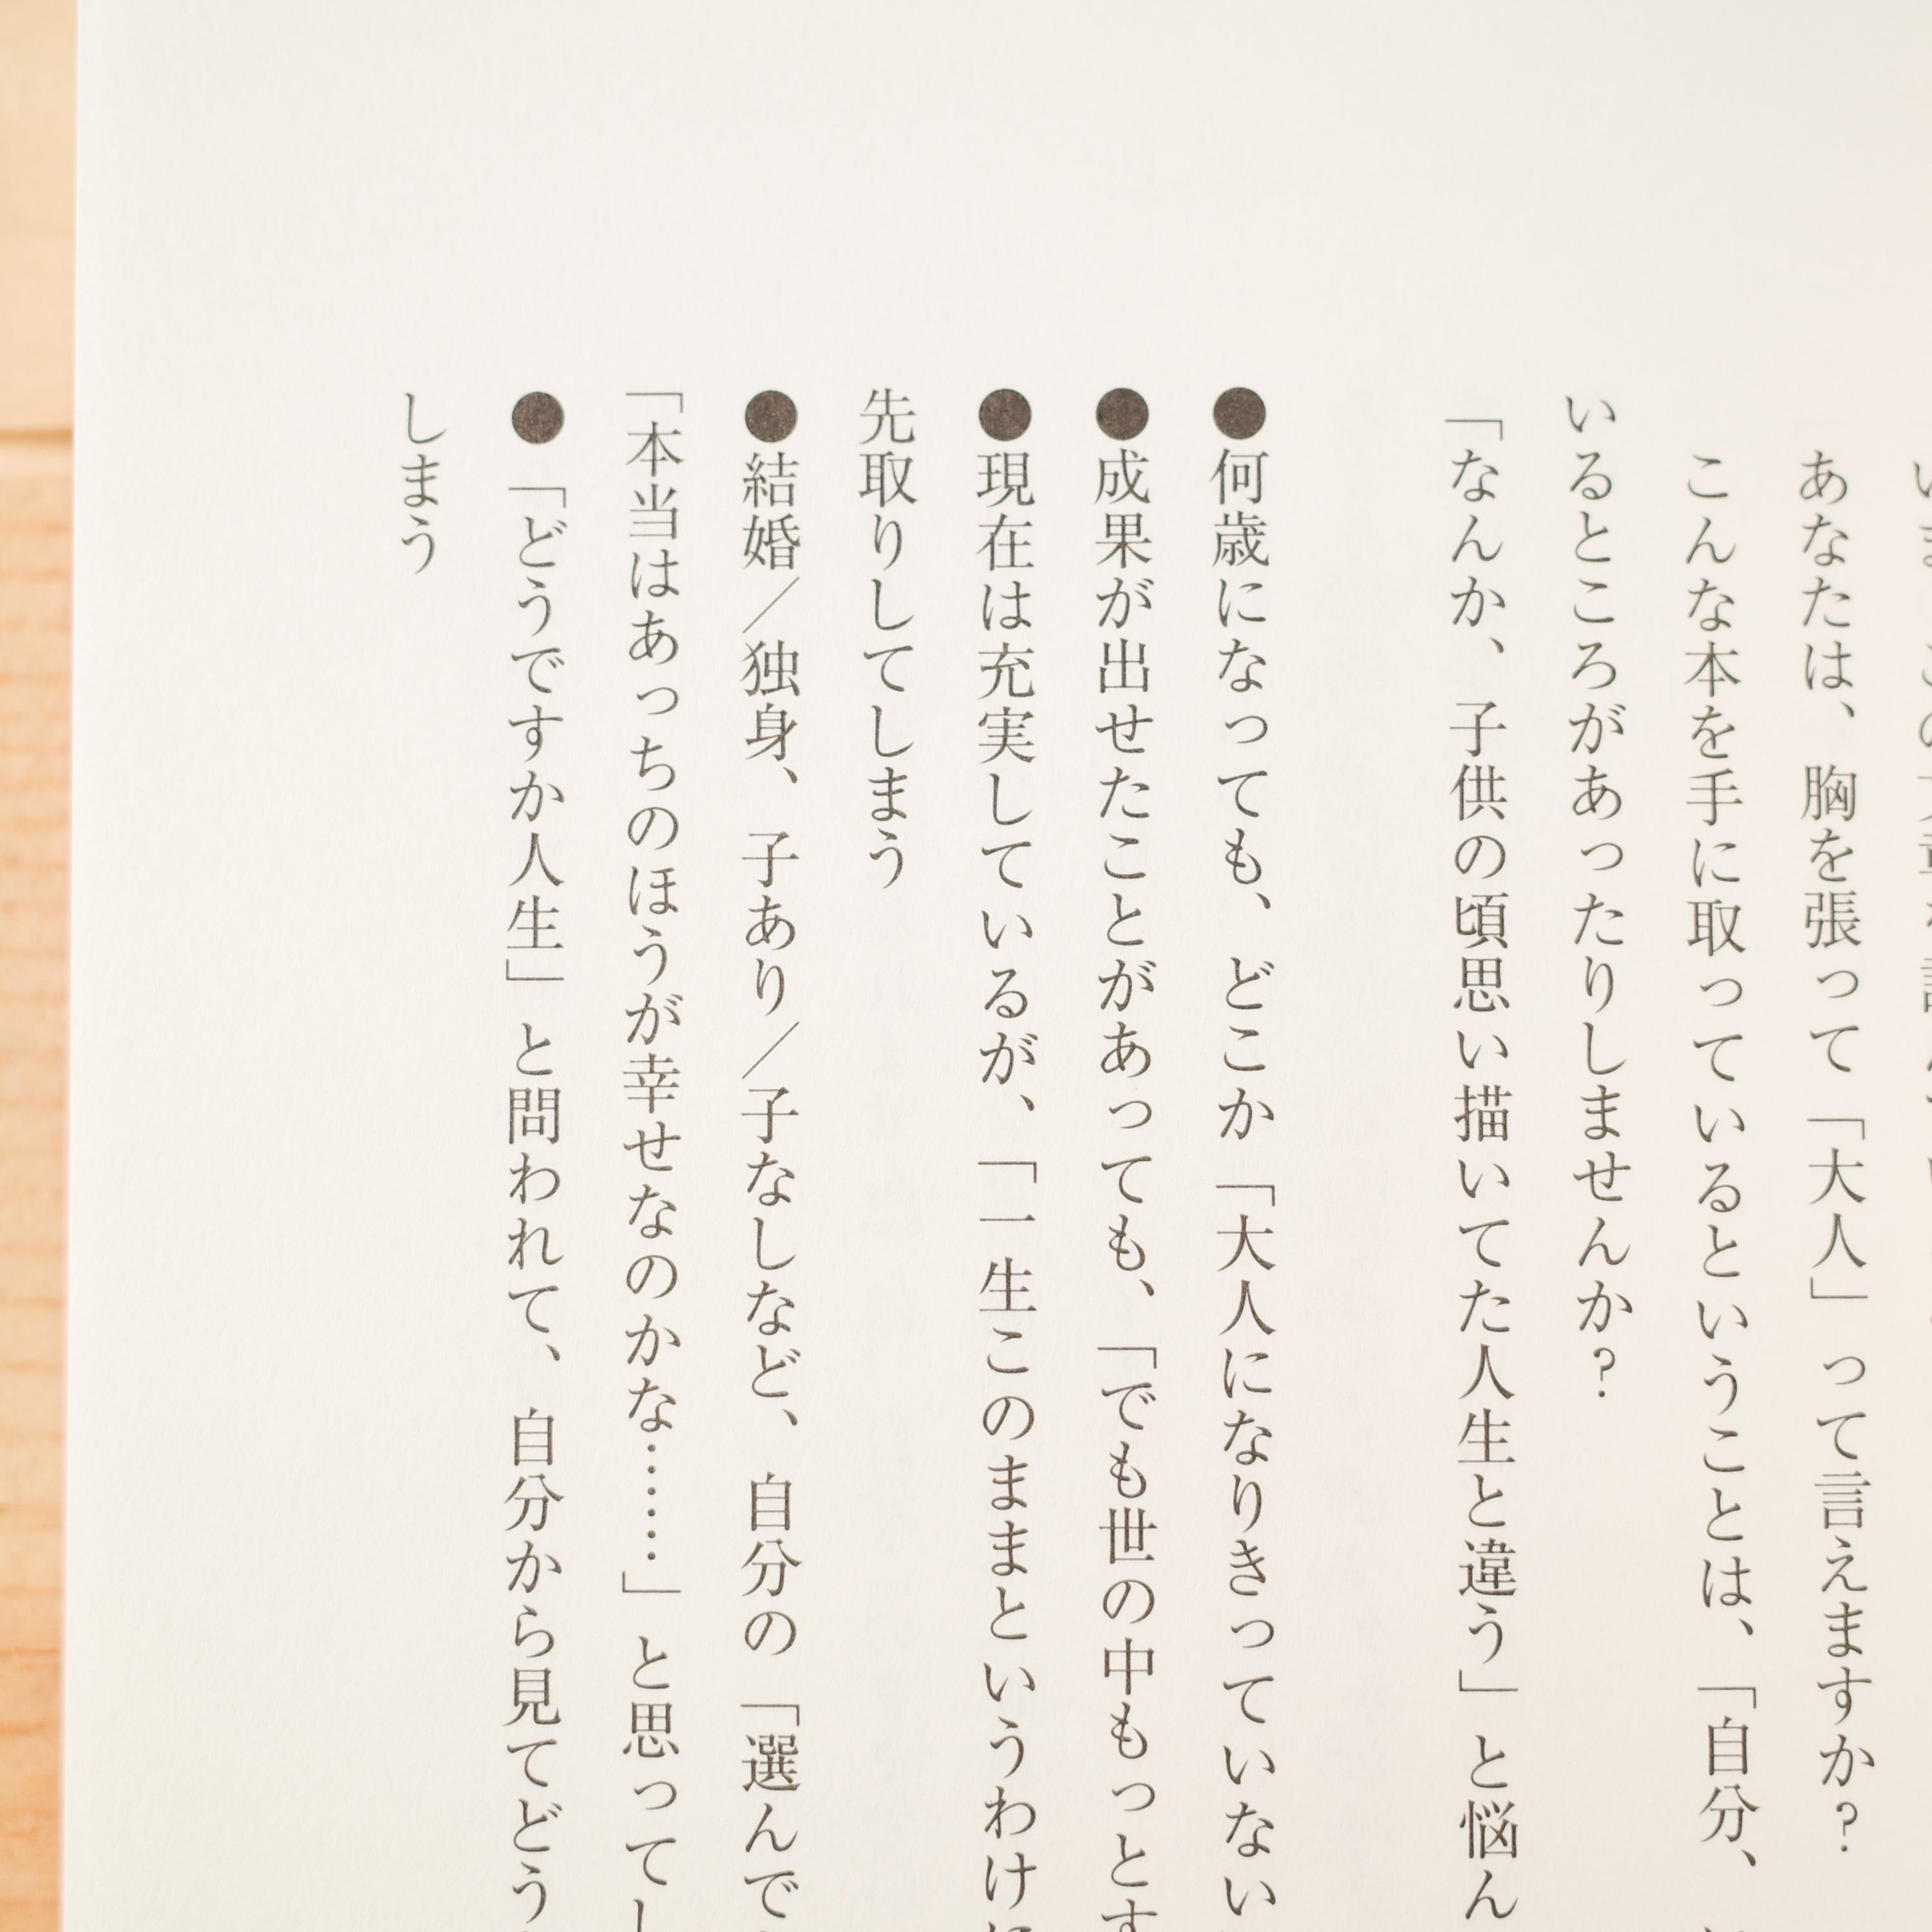 あなたは、胸を張って「大人」って言えますか?
こんな本を手に取っているということは、「自分、
いるところがあったりしませんか?
「なんか、子供の頃思い描いてた人生と違う」と悩ん
●何歳になっても、どこか「大人になりきっていない
●成果が出せたことがあっても、「でも世の中もっとす
●現在は充実しているが、「一生このままというわけに
先取りしてしまう
●結婚/独身、子あり/子なしなど、自分の「選んで
「本当はあっちのほうが幸せなのかな……」と思ってし
●「どうですか人生」と問われて、自分から見てどう
しまう